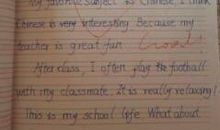 My favorite subject is Chinese I think
Chinese is very interesting Because my
teacher is great fun
After class, I often play the football
with my classmate. It is really relaxing!
This is my school life What about